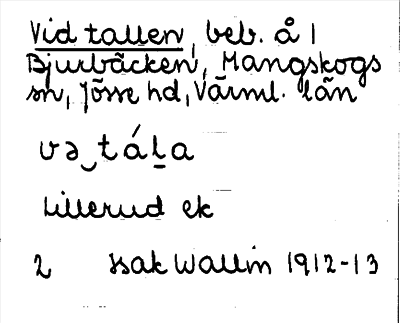 Vid tallen, beb. å 1
Bjurbäcken, Mangskogs
sn, Jösse hd, Värml. län
və‿táḻa
Lillerud ek
2 Isak Wallin 1912-13